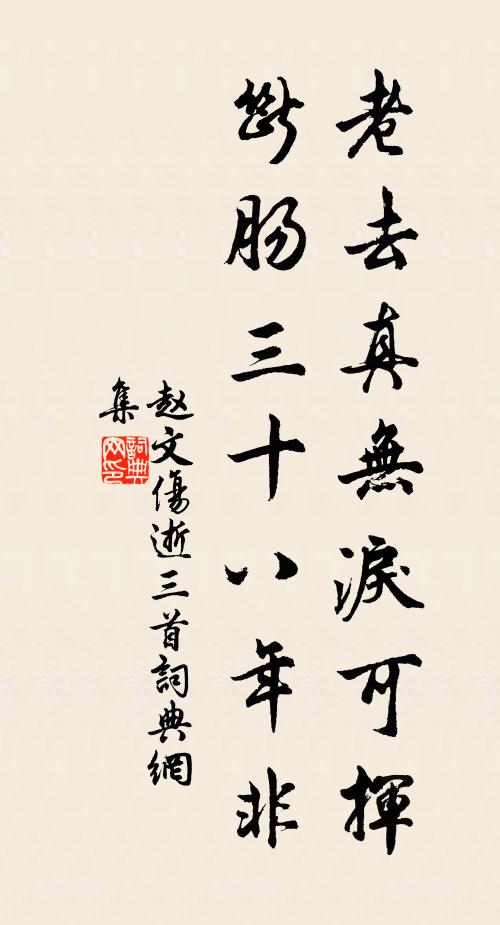 老去真無淚可揮
斷腸三十八年非
赵文傷逝三首詞典網
集
詞典
网印